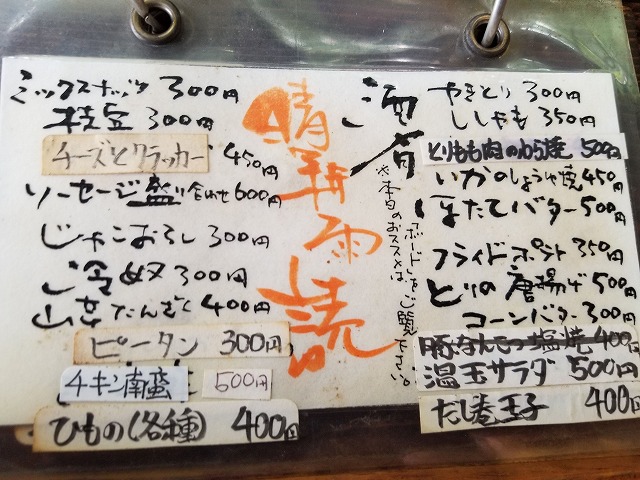 酒肴
やきとり 300円
ししゃも 350円
とりもも肉のから焼 500円
いかのしょうゆ焼 450円
ほたてバター 500円
フライドポテト 350円
とりの唐揚げ 500円
コーンバター 300円
豚なんこつ塩焼 400円
温玉サラダ 500円
だし巻玉子 400円
※本日のおススメは
ボードをご覧下さい。
晴耕雨読
ミックスナッツ 300円
枝豆 300円
チーズとクラッカー 450円
ソーセージ盛り合わせ 600円
じゃこおろし 300円
冷奴 300円
山芋たんざく 400円
ピータン 300円
チキン南蛮 500円
ひもの(各種) 400円